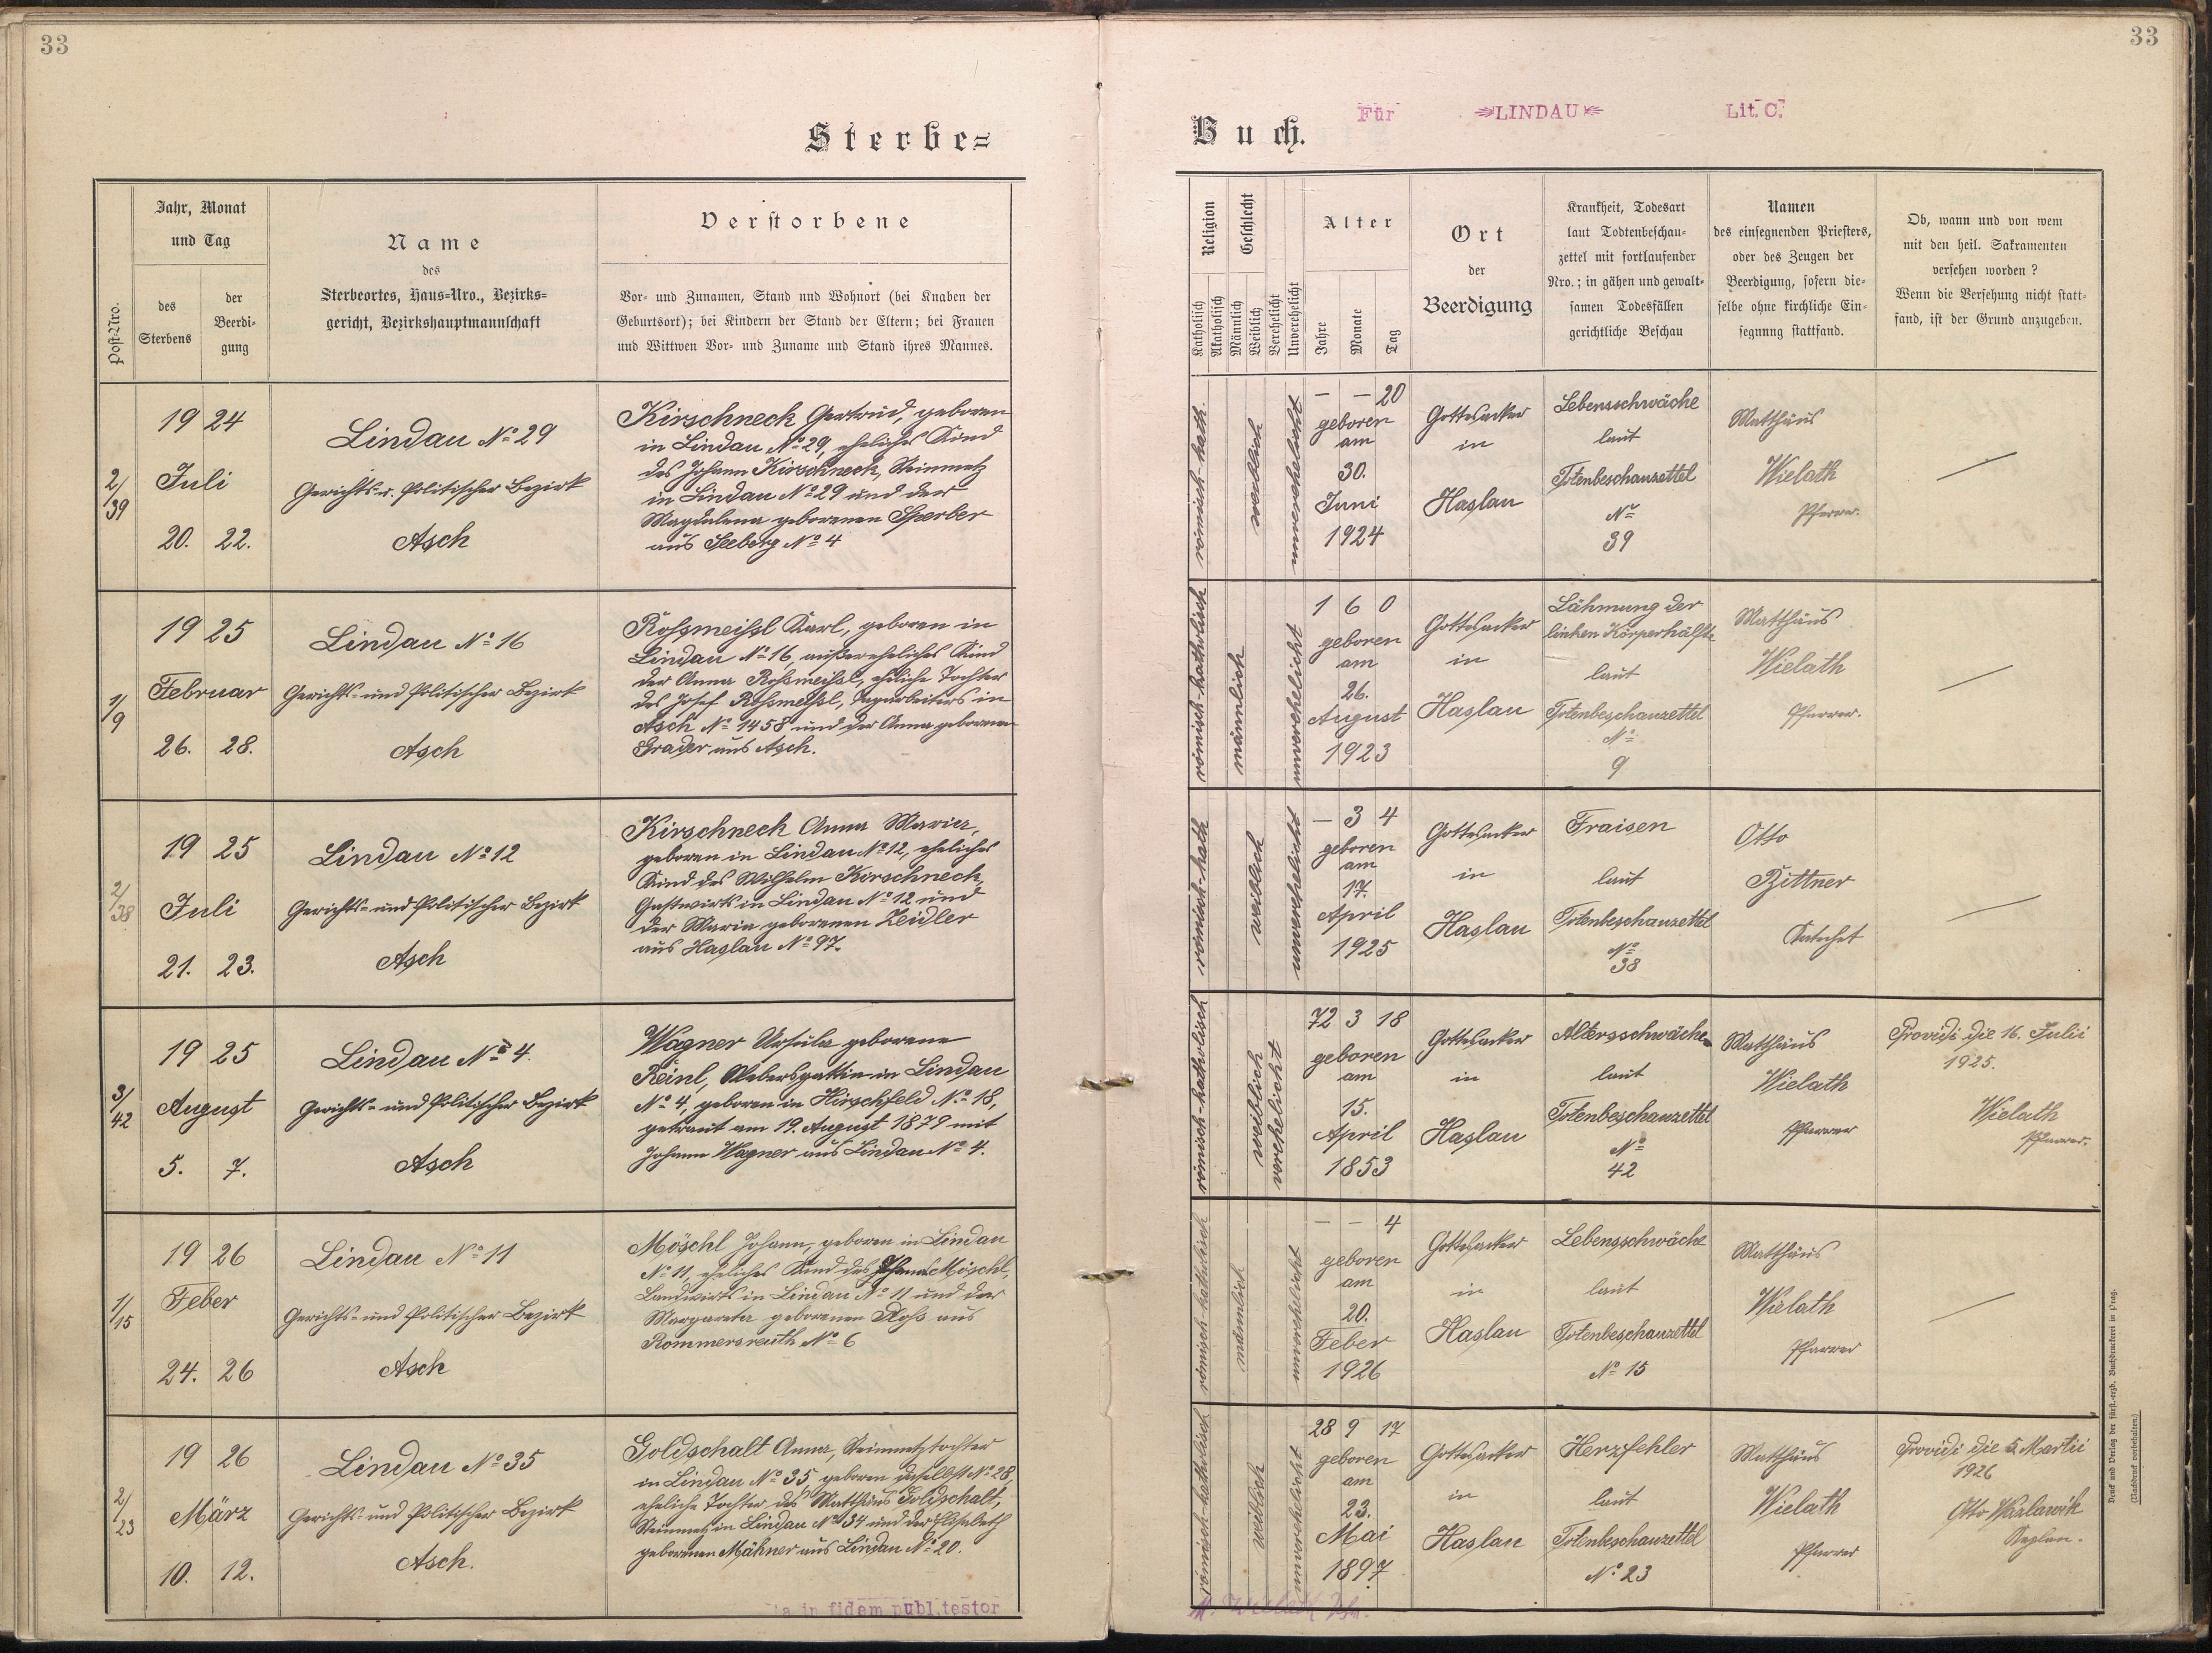 33
33
Für ⇒LINDAU⇐ Lit. C.
Sterbe=
Buch.
Post-Nro.
Jahr, Monat
und Tag
des
Sterbens
der
Beerdi-
gung
Name
des
Sterbeortes, Haus=Nro., Bezirks=
gericht, Bezirkshauptmannschaft
Verstorbene
Vor- und Zunamen, Stand und Wohnort (bei Knaben der
Geburtsort); bei Kindern der Stand der Eltern; bei Frauen
und Wittwen Vor- und Zuname und Stand ihres Mannes.
Religion
Katholisch
Akatholisch
Geschlecht
Männlich
Weiblich
Verehelicht
Unverehelicht
Alter
Jahre
Monate
Tag
Ort
der
Beerdigung
Krankheit, Todesart
laut Todtenbeschau-
zettel mit fortlaufender
Nro.; in gähen und gewalt-
samen Todesfällen
gerichtliche Beschau
Namen
des einsegnenden Priesters,
oder des Zeugen der
Beerdigung, sofern die-
selbe ohne kirchliche Ein-
segnung stattfand.
Ob, wann und von wem
mit den heil. Sakramenten
versehen worden?
Wenn die Versehung nicht statt-
fand, ist der Grund anzugeben.
2/39
19 24
Juli
20. 22.
Lindau No 29
Gerichts- u. Politischer Bezirk
Asch
Kirschneck Gertrud, geboren
in Lindau No 29, eheliches Kind
des Johann Kirschneck, Steinmetz
in Lindau No 29 und der
Magdalena geborenen Sperber
aus Seeberg No 4
römisch-kath.
weiblich
unverehelicht
– – 20
geboren
am
30.
Juni
1924
Gottesacker
in
Haslau
Lebensschwäche
laut
Totenbeschauzettel
No
39
Matthäus
Wielath
Pfarrer.
—
1/9
19 25
Februar
26. 28.
Lindau No 16
Gerichts- und Politischer Bezirk
Asch
Roßmeißl Karl, geboren in
Lindau No 16, außereheliches Kind
der Anna Roßmeißl, eheliche Tochter
des Josef Roßmeißl, in
Asch No 1458 und der Anna geborenen
Grader aus Asch.
römisch-katholisch
männlich
unverehelicht
1 6 0
geboren
am
26.
August
1923
Gottesacker
in
Haslau
Lähmung der
linken Körperhälfte
laut
Totenbeschauzettel
No
9
Matthäus
Wielath
Pfarrer.
—
2/38
19 25
Juli
21. 23.
Lindau No 12
Gerichts- und Politischer Bezirk
Asch
Kirschneck Anna Maria,
geboren in Lindau No 12, eheliches
Kind des Wilhelm Kirschneck,
Gastwirts in Lindau No 12 und
der Maria geborenen Zeidler
aus Haslau No 97.
römisch-kath
weiblich
unverehelicht
– 3 4
geboren
am
17.
April
1925
Gottesacker
in
Haslau
Fraisen
laut
Totenbeschauzettel
No
38
Otto
Bittner
Katechet
—
3/42
19 25
August
5. 7.
Lindau No 4.
Gerichts- und Politischer Bezirk
Asch
Wagner Ursula geborene
Reinl, Webersgattin in Lindau
No 4, geboren in Hirschfeld No 18,
getraut am 19. August 1879 mit
Johann Wagner aus Lindau No 4.
römisch-katholisch
weiblich
verehelicht
72 3 18
geboren
am
15.
April
1853
Gottesacker
in
Haslau
Altersschwäche
laut
Totenbeschauzettel
No
42
Matthäus
Wielath
Pfarrer
Providi die 16. Julii
1925.
Wielath
Pfarrer.
1/15
19 26
Feber
24. 26
Lindau No 11
Gerichts- und Politischer Bezirk
Asch
Möschl Johann, geboren in Lindau
No 11, eheliches Kind des Johann Möschl,
Landwirts in Lindau No 11 und der
Margareta geborenen Ploß aus
Rommersreuth No 6
römisch-katholisch
männlich
unverehelicht
– – 4
geboren
am
20.
Feber
1926
Gottesacker
in
Haslau
Lebensschwäche
laut
Totenbeschauzettel
No 15
Matthäus
Wielath
Pfarrer
—
2/23
19 26
März
10. 12.
Lindau No 35
Gerichts- und Politischer Bezirk
Asch.
Goldschalt Anna, Steinmetztochter
in Lindau No 35, geboren daselbst No 28,
eheliche Tochter des Matthäus Goldschalt,
Steinmetz in Lindau No 34 und der Elisabeth
geborenen Mähner aus Lindau No 20.
römisch-katholisch
weiblich
unverehelicht
28 9 17
geboren
am
23.
Mai
1897
Gottesacker
in
Haslau
Herzfehler
laut
Totenbeschauzettel
No 23
Matthäus
Wielath
Pfarrer
Providi die 5. Martii
1926
Otto
Kaplan.
ta in fidem publ. testor
M. Wielath Pfr.
Druck und Verlag der fürst.-erzb. Buchdruckerei in Prag.
(Nachdruck vorbehalten.)